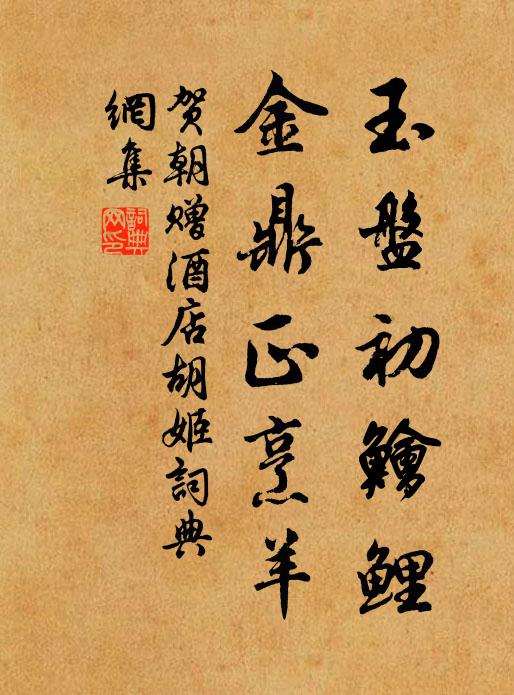 玉盤初鱠鯉
金鼎正烹羊
贺朝赠酒店胡姬詞典
網集
詞典網印